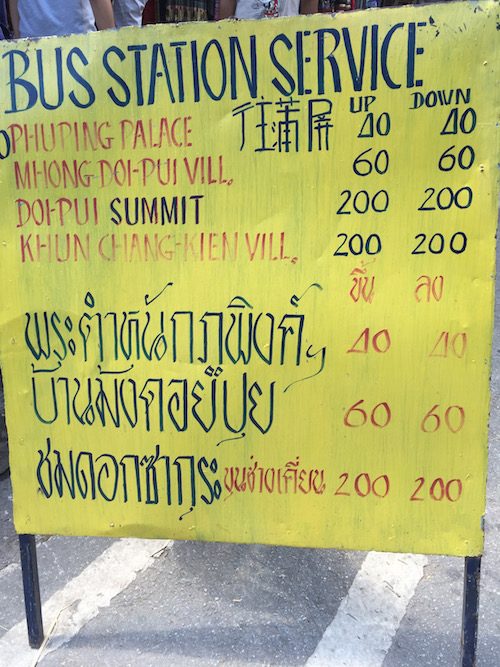 BUS STATION SERVICE
UP DOWN
PHUPING PALACE 往蒲屏 40 40
MHONG DOI-PUI VILL. 60 60
DOI-PUI SUMMIT 200 200
KHUN CHANG-KIEN VILL. 200 200
ขึ้น ลง
พระตำหนักภูพิงค์ฯ 40 40
บ้านม้งดอยปุย 60 60
ชมดอกซากุระ ขุนช่างเคี่ยน 200 200